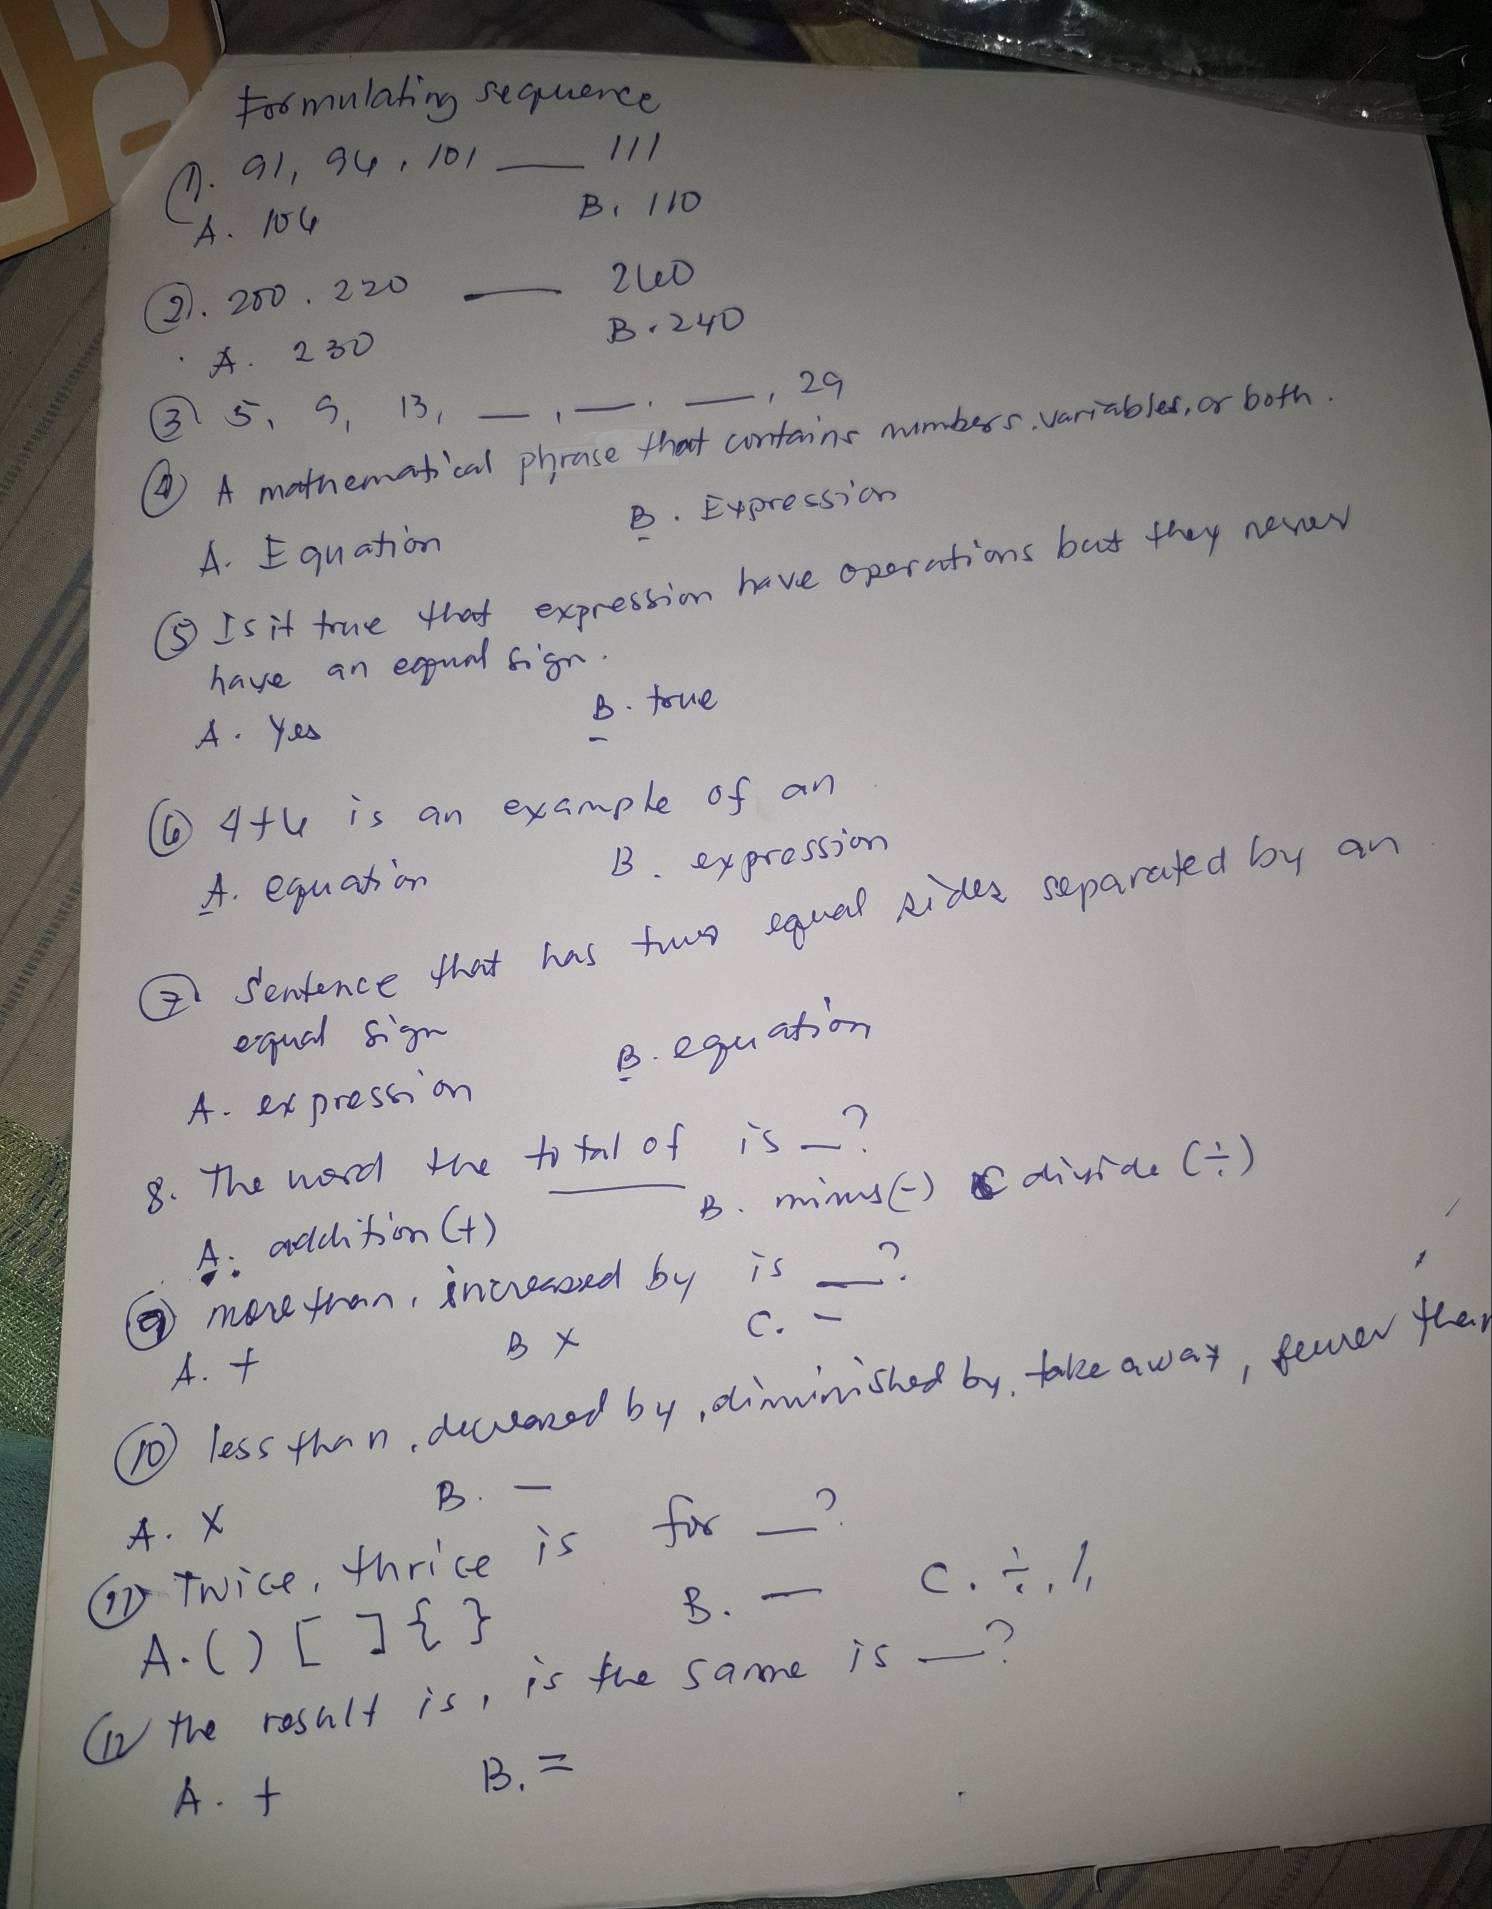 Formulating sequence
1. 91, 96, 101 ___ 111
A. 106 B. 110
2. 200. 220 ___ 260
A. 230 B. 240
3 5, 9, 13, __, __. __, 29
4 A mathematical phrase that contains numbers, variables, or both.
A. Equation B. Expression
5 Is it true that expression have operations but they never
have an equal sign.
A. Yes B. true
6 4+6 is an example of an
A. equation B. expression
7 Sentence that has two equal sides separated by an
equal sign
A. expression B. equation
8. The word the total of is __?
A. addition (+) B. minus (-) C divide (÷)
9 more than, increased by is __?
A. + B x C. -
10 less than, decreased by, diminished by, take away, fewer than
A. x B. -
11 Twice, thrice is for __?
A. ( ) [ ] { } B. - C. ÷,
12 the result is, is the same is __?
A. + B. =